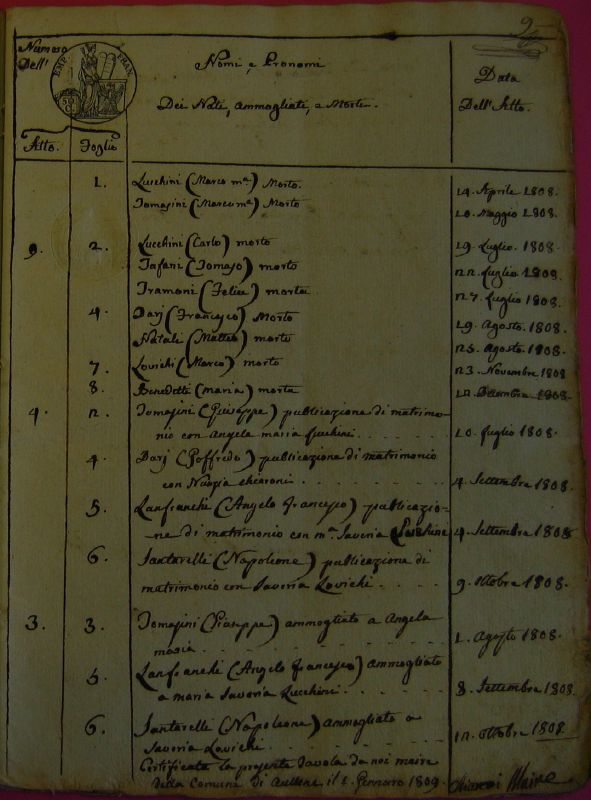 9
Numero
Dell'
EMP. FRAN.
Nomi, e Pronomi
Dei Nati, ammogliati, e Morti.
Data
Dell'Atto.
Atto. Foglio
1. Lucchini (Marco m.a) Morto. 14. Aprile 1808.
Tomasini (Marcom.a) Morto 10. Maggio 1808.
9. 2. Lucchini (Carlo) morto 19. Luglio. 1808.
Tafani (Tomaso) morto 22. Luglio 1808.
Tramoni (Felice) morta. 27. Luglio 1808.
4. Darj (Francesco) Morto 19. Agosto. 1808.
Natali (Matteo) morto 25. Agosto 1808.
7. Lovichi (Marco) morto 23. Novembre 1808
8. Benedetti (maria) morta 12. Decembre 1808.
4. 2. Tomasini (Giuseppe) publicazione di matrimo-
nio con Angela maria . . . . . . 10. Luglio 1808.
4. Darj (Goffredo) publicazione di matrimonio
con Nunzia chiaroni . . . . . . 4. Settembre 1808.
5. Lanfranchi (Angelo francesco) publicazio-
ne di matrimonio con m.a Saveria 4. Settembre 1808
6. Santarelli (Napoleone) publicazione di
matrimonio con Saveria Lovichi. . . . . 9. Ottobre 1808.
3. 3. Tomasini (Giuseppe) ammogliato a Angela
maria . . . . . . 1. Agosto 1808.
5. Lanfranchi (Angelo francesco) Ammogliato
a maria Saveria Lucchini. . . . . 8. Settembre 1808.
6. Santarelli (Napoleone) ammogliato a
Saveria Lovichi. . . . . . 12. Ottobre 1808.
Certificata la presente Tavola da noi maire
della Comune di Aullene il 1. Gennaro 1809. Chiaroni Maire